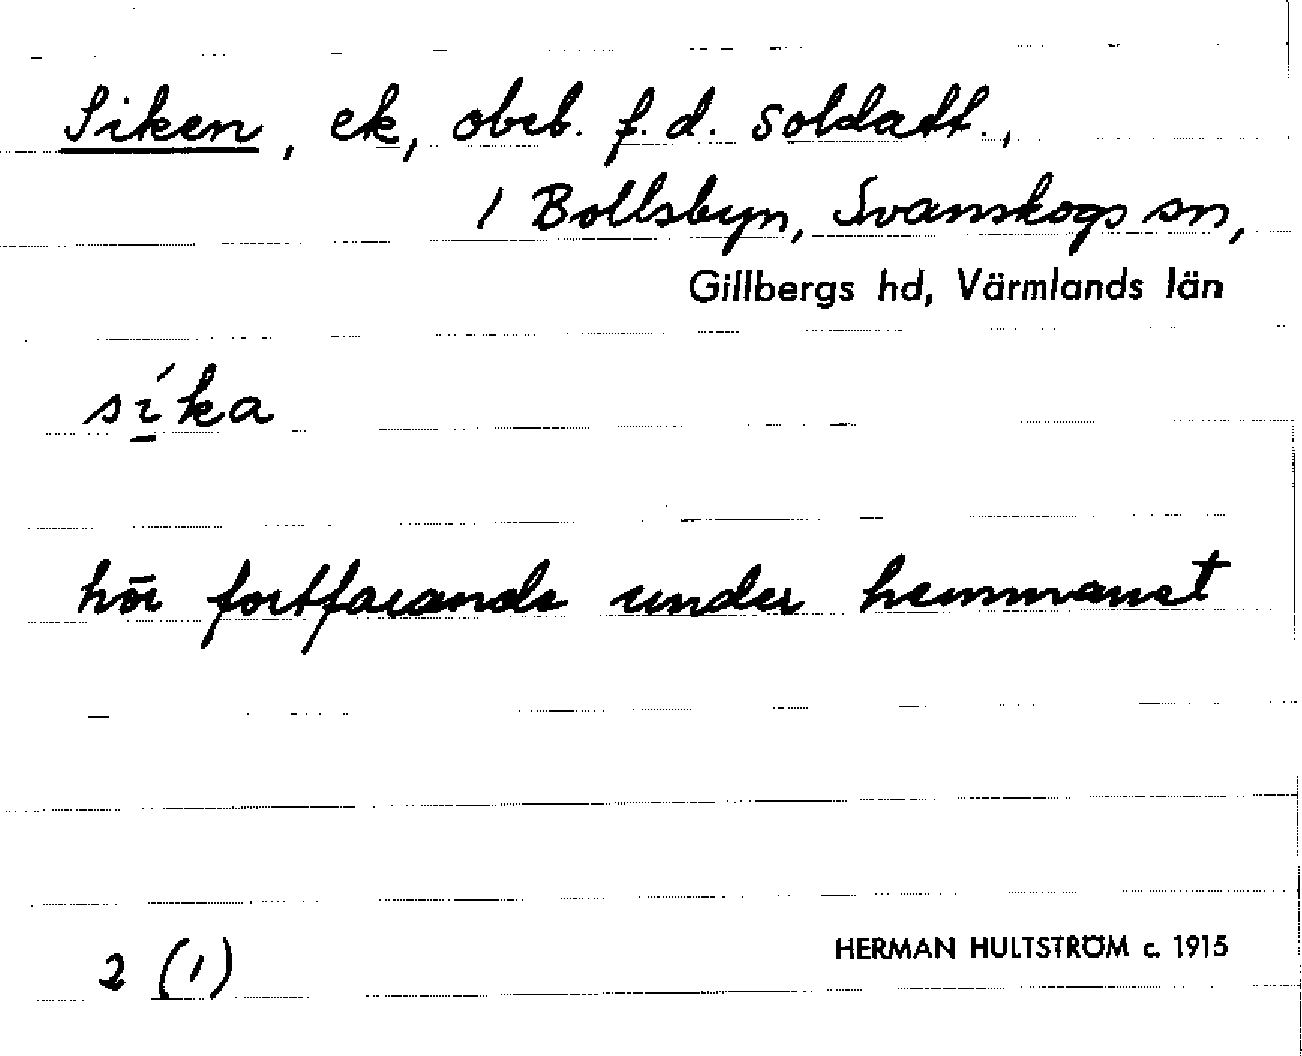 Siken, ek, obeb. f.d. soldatt.,
1 Bollsbyn, Svanskogs sn,
Gillbergs hd, Värmlands län
sí̱ka
hör fortfarande under hemmanet
2 (1)
HERMAN HULTSTRÖM c. 1915